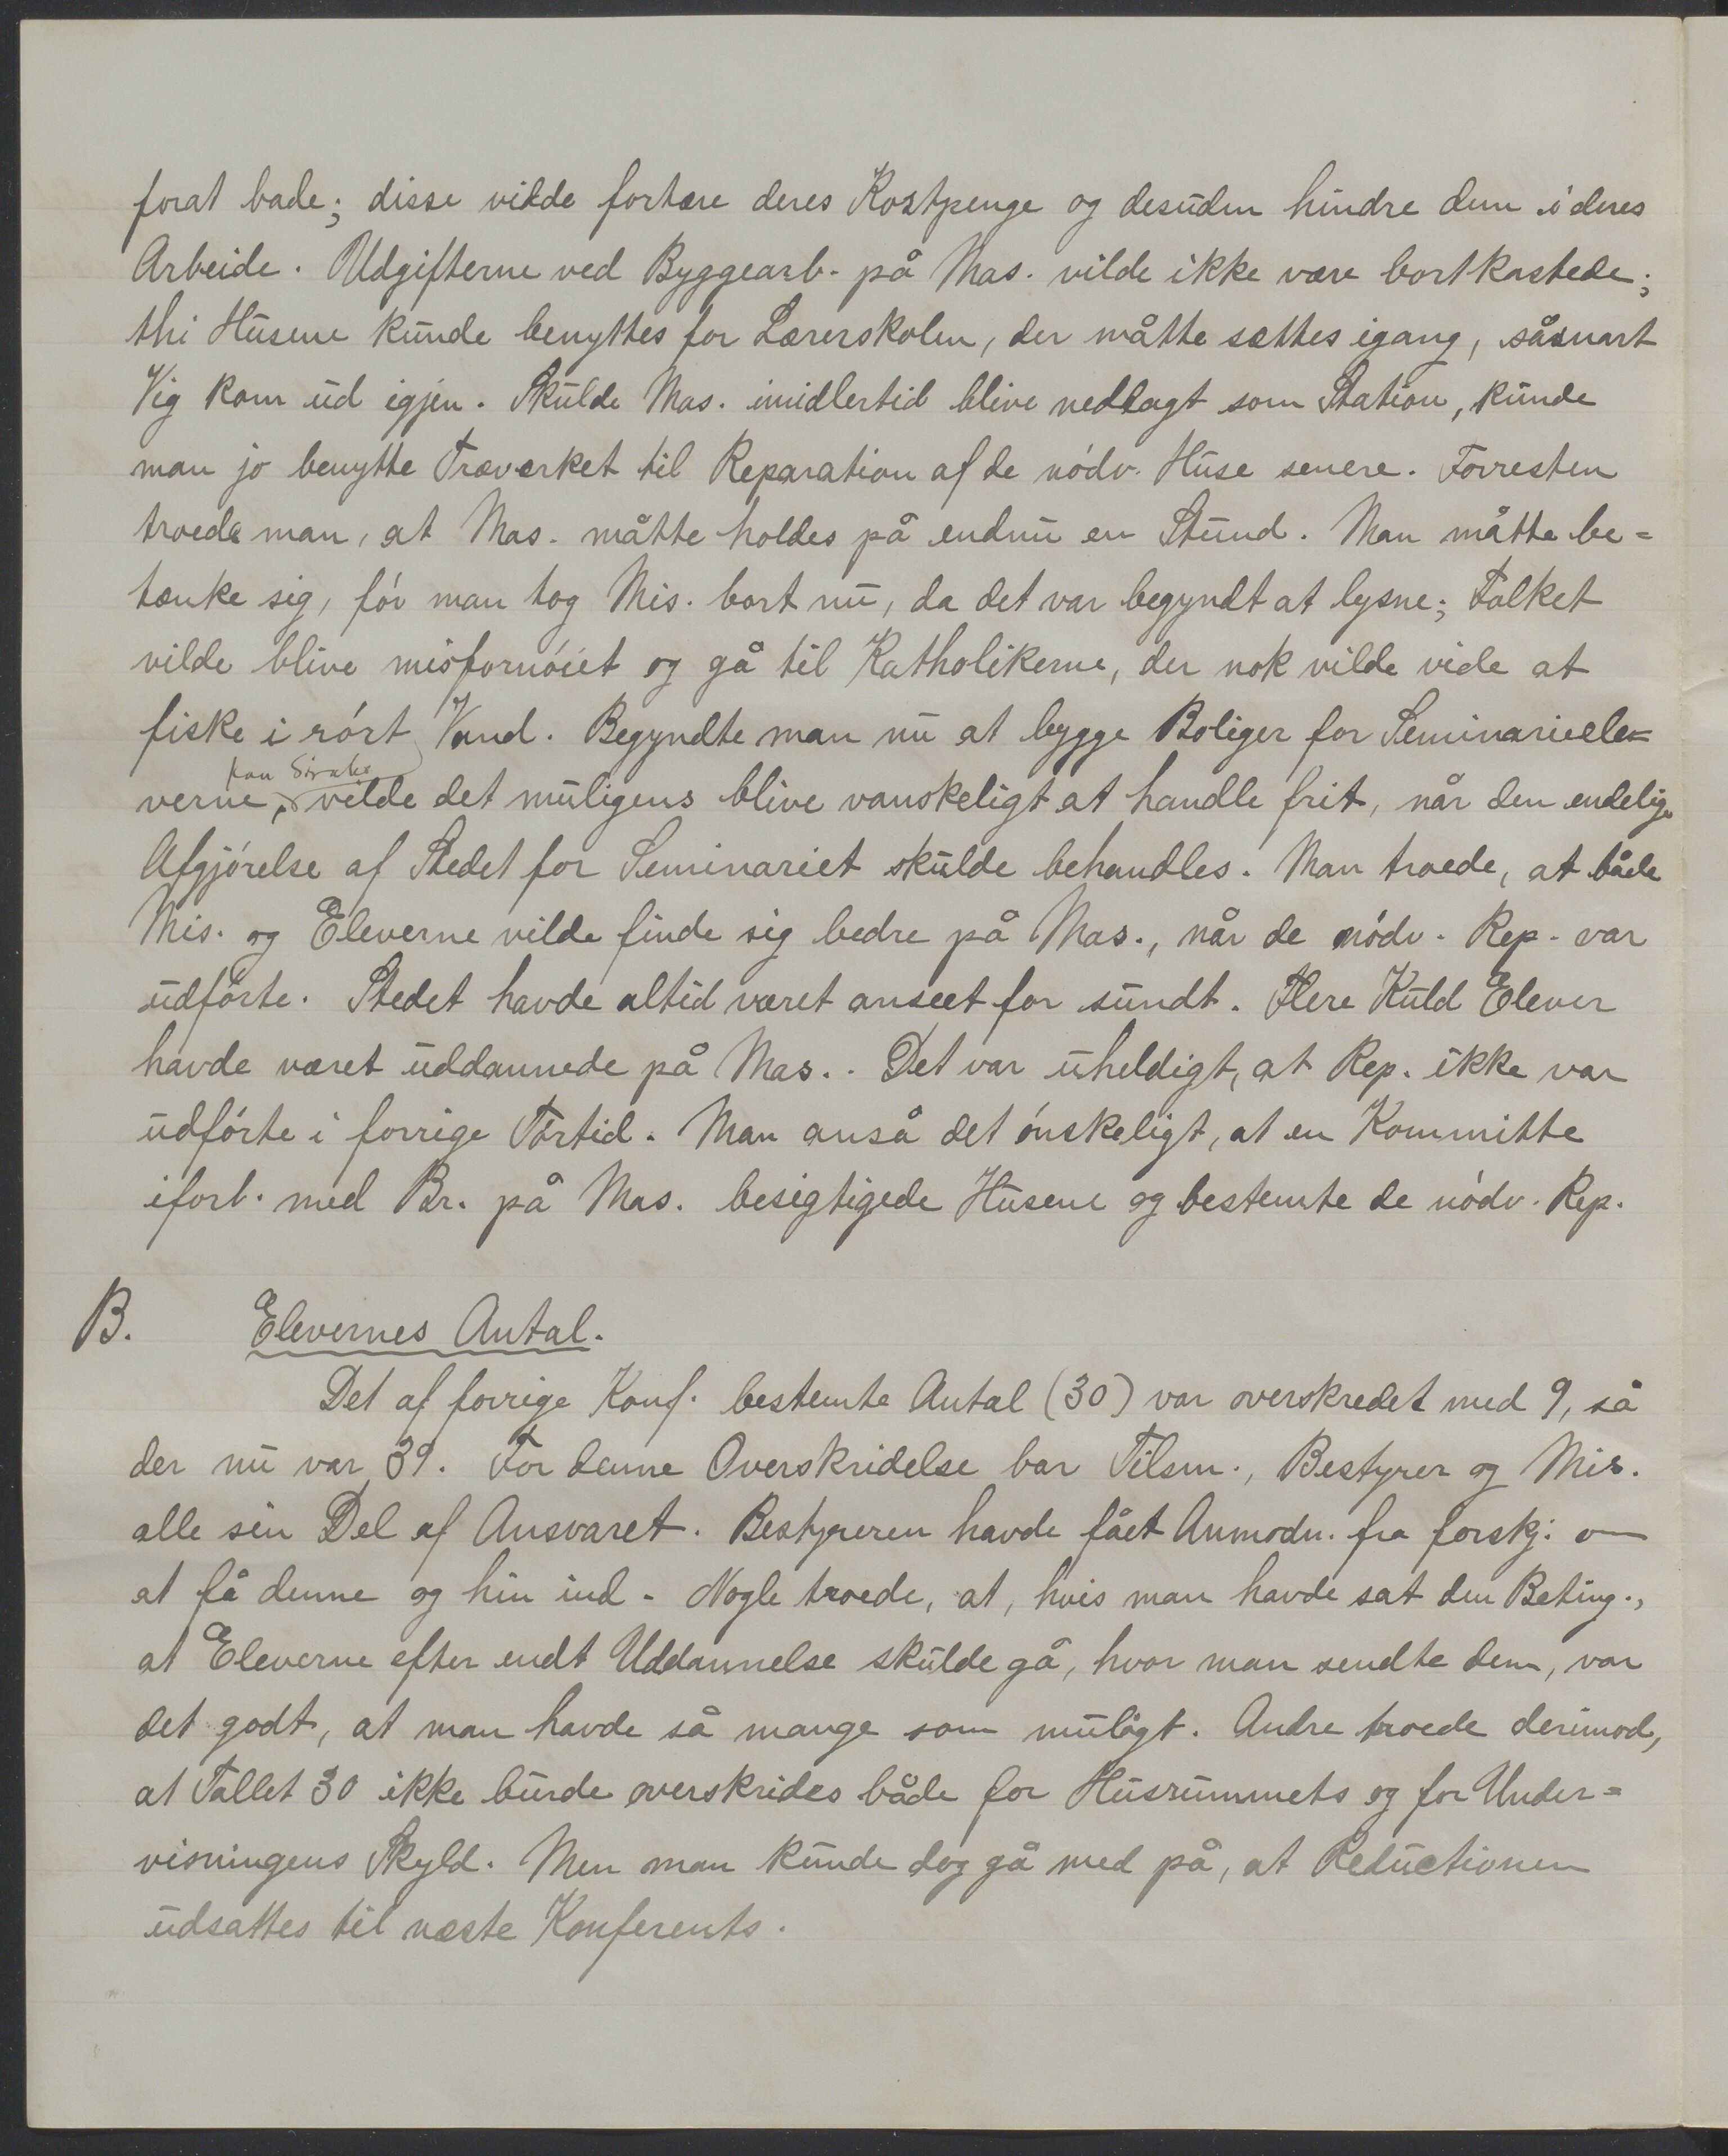 forat bade; disse vilde fortære deres Kostpenge og desuden hindre dem i deres
Arbeide. Udgifterne ved Byggearb. på Mas. vilde ikke være bortkastede;
thi Husene kunde benyttes for Lærerskolen, der måtte sættes igang, såsnart
Vig kom ud igjen. Skulde Mas. imidlertid blive nedlagt som Station, kunde
man jo benytte Træverket til Reparation af de nódv. Huse senere. Forresten
troede man, at Mas. måtte holdes på endnu en Stund. Man måtte be=
tænke sig, fór man tog Mis. bort nu, da det var begyndt at lysne; Folket
vilde blive misfornóiet og gå til Katholikerne, der nok vilde vide at
fiske i rórt Vand. Begyndte man nu at bygge Boliger for Seminarieele=
paa Sirabe
verne, vilde det muligens blive vanskeligt at handle frit, når den endelige
Afgjórelse af Stedet for Seminariet skulde behandles. Man troede, at både
Mis. og Eleverne vilde finde sig bedre på Mas., når de nódv. Rep. var
udfórte. Stedet havde altid været anseet for sundt. Flere Kuld Elever
havde været uddannede på Mas.. Det var uheldigt, at Rep. ikke var
udfórte i forrige Tórtid. Man anså det ónskeligt, at en Kommitte
iforb. med Br. på Mas. besigtigede Husene og bestemte de nódv. Rep.
B. Elevernes Antal.
Det af forrige Konf. bestemte Antal (30) var overskredet med 9, så
der nu var 39. For denne Overskridelse bar Tilsm., Bestyrer og Mis.
alle sin Del af Ansvaret. Bestyreren havde fået Anmodn. fra forskj. om
at få denne og hin ind. Nogle troede, at, hvis man havde sat den Beting.,
at Eleverne efter endt Uddannelse skulde gå, hvor man sendte dem, var
det godt, at man havde så mange som muligt. Andre troede derimod,
at Tallet 30 ikke burde overskrides både for Husrummets og for Under=
visningens Skyld. Men man kunde dog gå med på, at Reductionen
udsattes til næste Konferents.